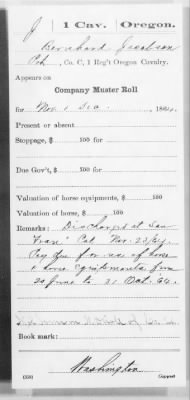 J | 1 Cav. | Oregon.
Bernhard Jacobson
Pvt, Co. C, 1 Reg't Oregon Cavalry.
Appears on
Company Muster Roll
for Nov & Dec, 1864.
Present or absent
Stoppage, $ 100 for
Due Gov't, $ 100 for
Valuation of horse equipments, $ 100
Valuation of horse, $ 100
Remarks: Discharged at San
Fran Cal Nov. 23/64.
Pay due for use of horse
& horse equipments from
30 June to 31 Oct. 64.
Book mark:
Washington
Copyist.